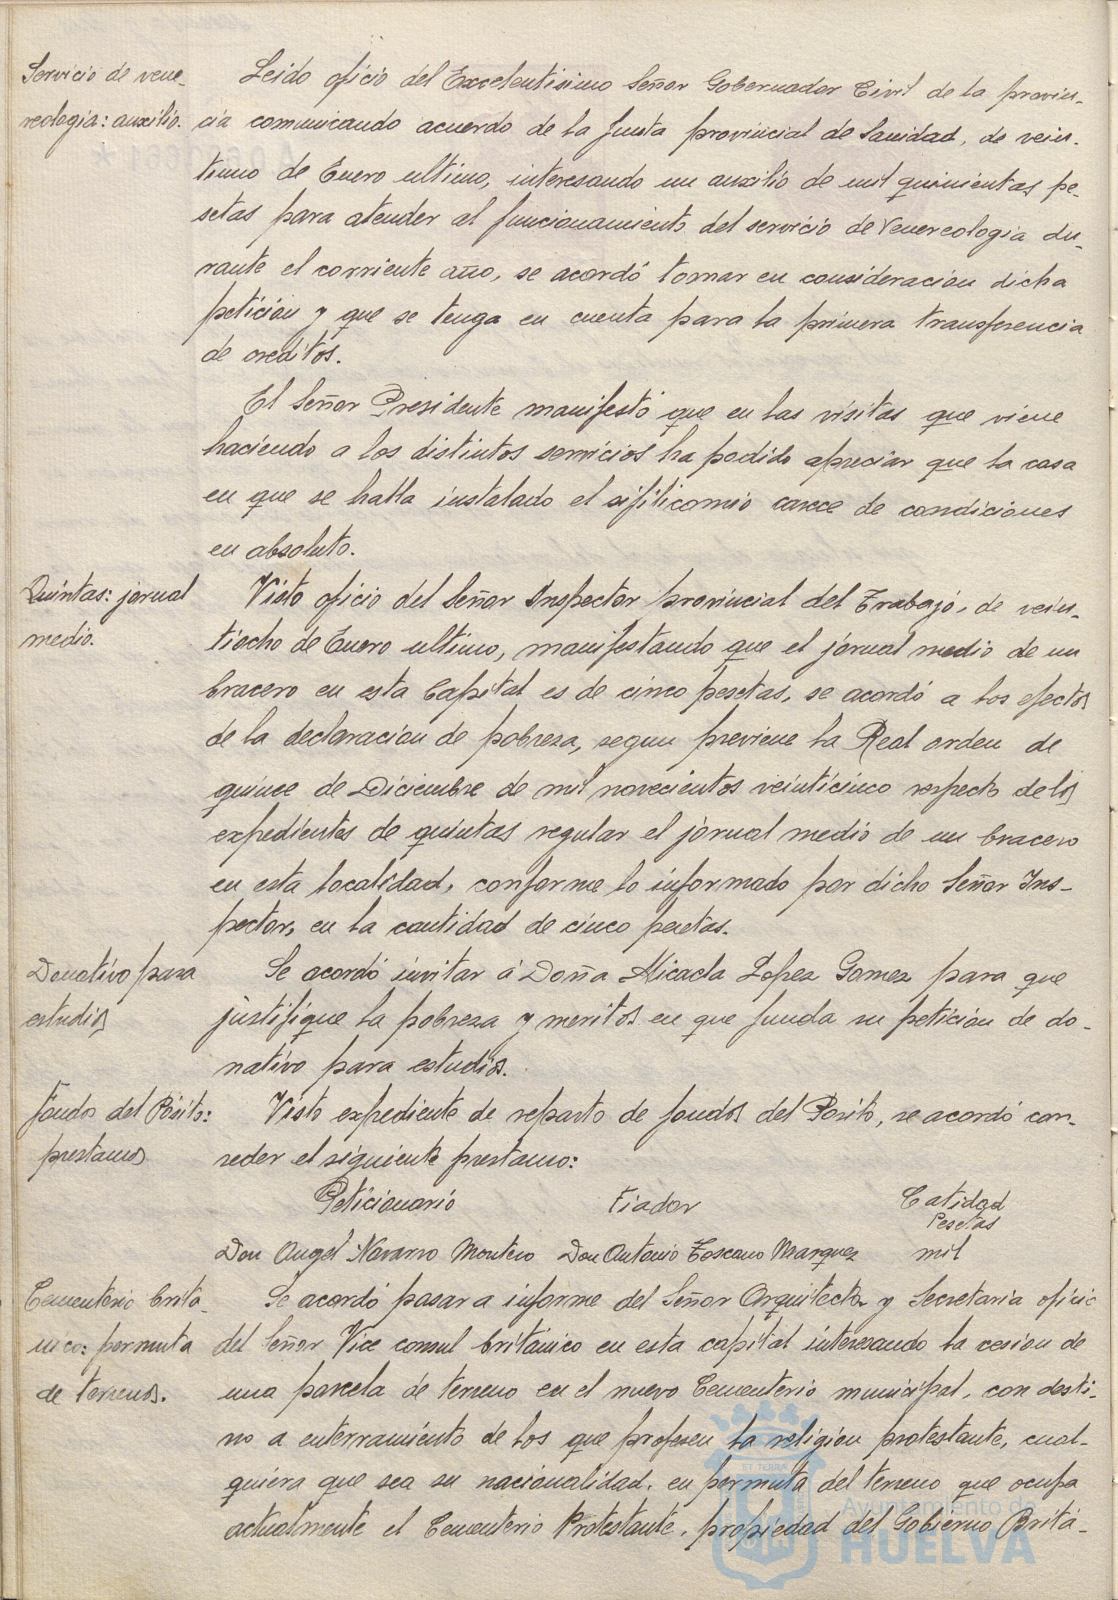 Servicio de vene-
reologia: auxilio.
Leido oficio del Excelentisimo Señor Gobernador Civil de la provin-
cia comunicando acuerdo de la Junta provincial de Sanidad, de vein-
tiuno de Enero ultimo, interesando un auxilio de mil quinientas pe-
setas para atender al funcionamiento del servicio de Venereologia du-
rante el corriente año, se acordó tomar en consideracion dicha
petición y que se tenga en cuenta para la primera transferencia
de creditos.
El Señor Presidente manifestó que en las visitas que viene
haciendo a los distintos servicios ha podido apreciar que la casa
en que se halla instalado el sifilicomio carece de condiciones
en absoluto.
Quintas: jornal
medio.
Visto oficio del Señor Inspector provincial del Trabajo, de vein-
tiocho de Enero ultimo, manifestando que el jornal medio de un
bracero en esta Capital es de cinco pesetas, se acordó a los efectos
de la declaracion de pobreza, segun previene la Real orden de
quince de Diciembre de mil novecientos veinticinco respecto de los
expedientes de quintas regular el jornal medio de un bracero
en esta localidad, conforme lo informado por dicho Señor Ins-
pector, en la cantidad de cinco pesetas.
Donativo para
estudios
Se acordó invitar á Doña Micaela Lopez Gomez para que
justifique la pobreza y meritos en que funda su petición de do-
nativo para estudios.
Fondos del Pósito:
prestamos
Visto expediente de reparto de fondos del Posito, se acordó con-
ceder el siguiente prestamo:
Peticionario Fiador Catidad
Pesetas
Don Angel Navarro Montero Don Antonio Toscano Marquez mil
Cementerio britá-
nico: permuta
de terrenos.
Se acordó pasar a informe del Señor Arquitecto y Secretaria oficio
del Señor Vice consul británico en esta capital interesando la cesion de
una parcela de terreno en el nuevo Cementerio municipal, con desti-
no a enterramiento de los que profesen la religion protestante, cual-
quiera que sea su nacionalidad, en permuta del terreno que ocupa
actualmente el Cementerio Protestante, propiedad del Gobierno Britá-
Ayuntamiento de
HUELVA